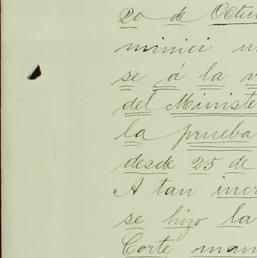 20 de Octu
minici u
se á la v
del Ministe
la prueba
desde 25 de
A tan incr
se hizo la
Corte man